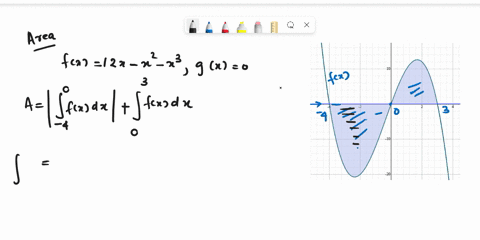 Area
f(x) = 12x - x² - x³, g(x) = 0
A = |∫₋₄⁰ f(x) dx| + ∫₀³ f(x) dx
∫ =
f(x)
-4 0 3